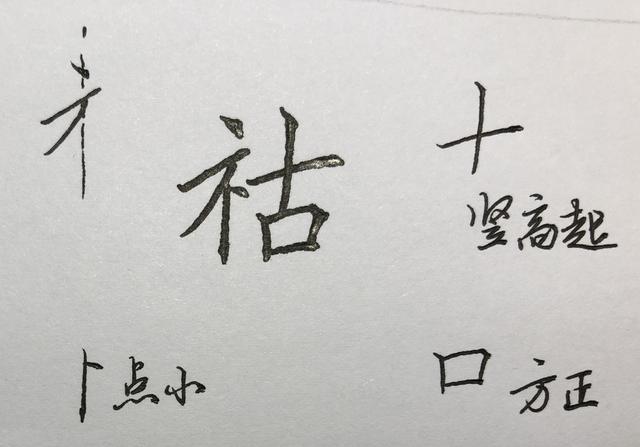 祜
十
竖高起
卜点小
口方正